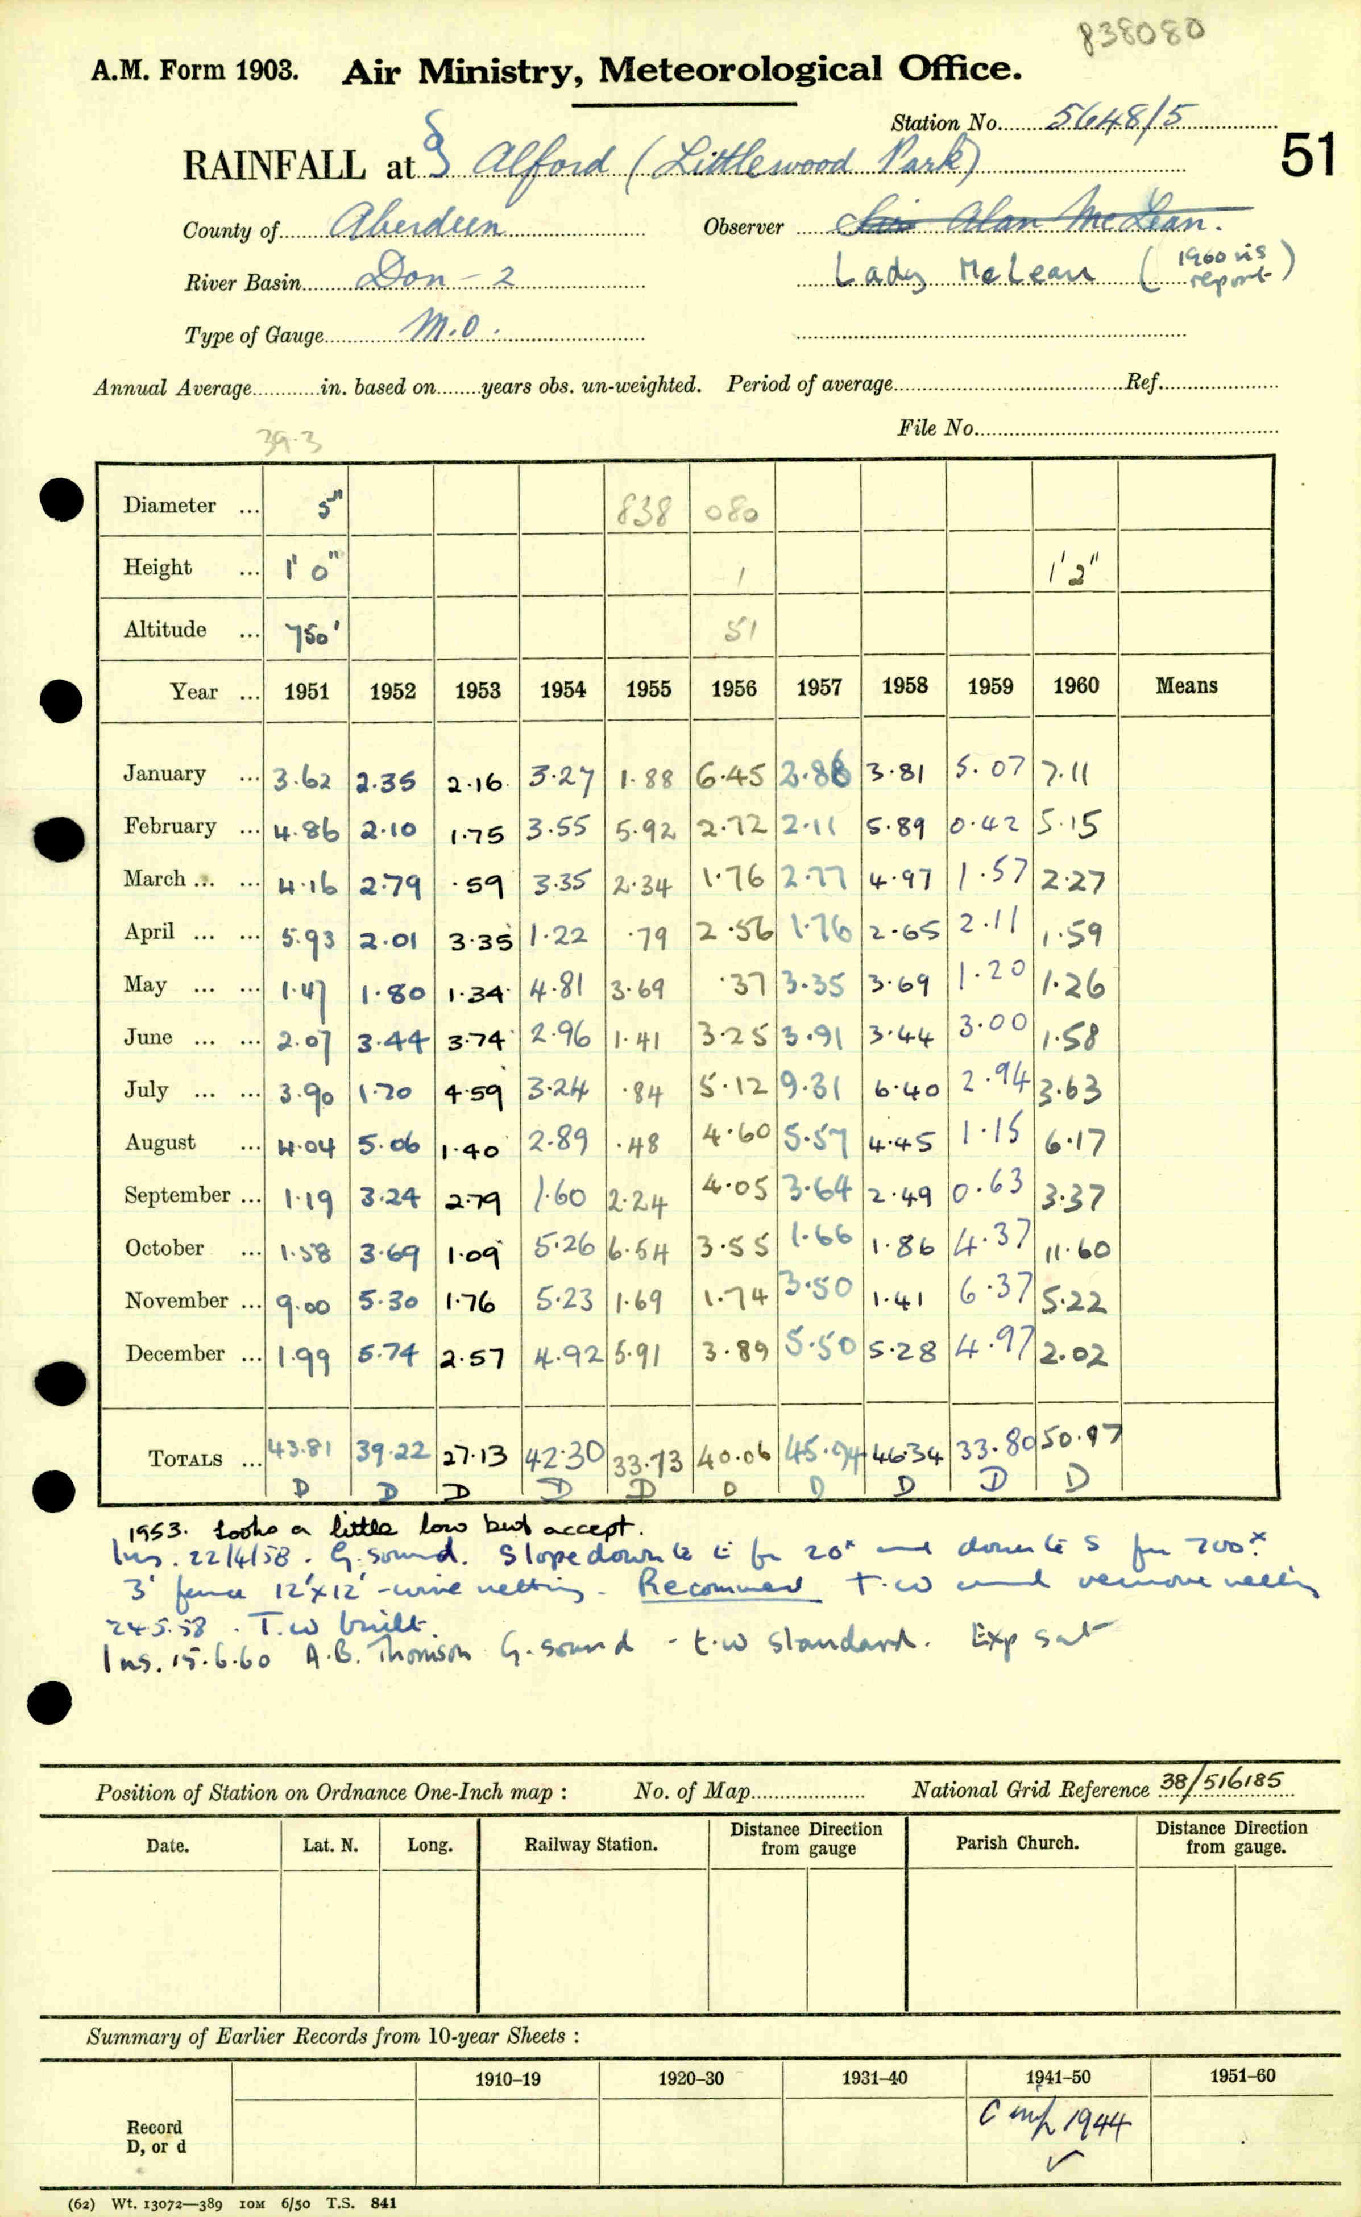 838080
A.M. Form 1903. Air Ministry, Meteorological Office.
Station No. 5648/5
RAINFALL at § Alford (Littlewood Park)
51
County of Aberdeen Observer Sir Alan McLean.
River Basin Don - 2 Lady McLean (1960 vis report)
Type of Gauge M.O.
Annual Average in. based on years obs. un-weighted. Period of average Ref.
File No.
39.3
Diameter ... 5" 838 080
Height ... 1' 0" 1 1'2"
Altitude ... 750' 51
Year ... 1951 1952 1953 1954 1955 1956 1957 1958 1959 1960 Means
January ... 3.62 2.35 2.16 3.27 1.88 6.45 2.86 3.81 5.07 7.11
February ... 4.86 2.10 1.75 3.55 5.92 2.72 2.11 5.89 0.42 5.15
March ... ... 4.16 2.79 .59 3.35 2.34 1.76 2.77 4.97 1.57 2.27
April ... ... 5.93 2.01 3.35 1.22 .79 2.56 1.76 2.65 2.11 1.59
May ... ... 1.47 1.80 1.34 4.81 3.69 .37 3.35 3.69 1.20 1.26
June ... ... 2.07 3.44 3.74 2.96 1.41 3.25 3.91 3.44 3.00 1.58
July ... ... 3.90 1.70 4.59 3.24 .84 5.12 9.31 6.40 2.94 3.63
August ... 4.04 5.06 1.40 2.89 .48 4.60 5.57 4.45 1.15 6.17
September ... 1.19 3.24 2.79 1.60 2.24 4.05 3.64 2.49 0.63 3.37
October ... 1.58 3.69 1.09 5.26 6.54 3.55 1.66 1.86 4.37 11.60
November ... 9.00 5.30 1.76 5.23 1.69 1.74 3.50 1.41 6.37 5.22
December ... 1.99 5.74 2.57 4.92 5.91 3.89 5.50 5.28 4.97 2.02
TOTALS ... 43.81 39.22 27.13 42.30 33.73 40.06 45.94 46.34 33.80 50.97
D D D D D D D D D D
1953. Looks a little low but accept.
Ins. 22/4/58. G. sound. Slope down to E for 20x and down to S for 200x.
3' fence 12'x12' - wire netting. Recommend T.W and remove netting
24.5.58. T.W built.
Ins. 15.6.60 A.B. Thomson G. sound - t.w standard. Exp sat
Position of Station on Ordnance One-Inch map : No. of Map National Grid Reference 38/516185
Date. Lat. N. Long. Railway Station. Distance Direction from gauge Parish Church. Distance Direction from gauge.
Summary of Earlier Records from 10-year Sheets :
1910–19 1920–30 1931–40 1941–50 1951–60
Record D, or d 1944 ✓
(62) Wt. 13072—389 10M 6/50 T.S. 841